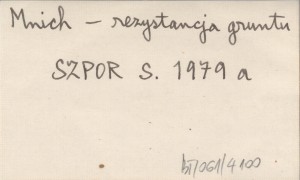 Mnich - rezystancja gruntu
SZPOR S. 1979 a
bT/061/4100